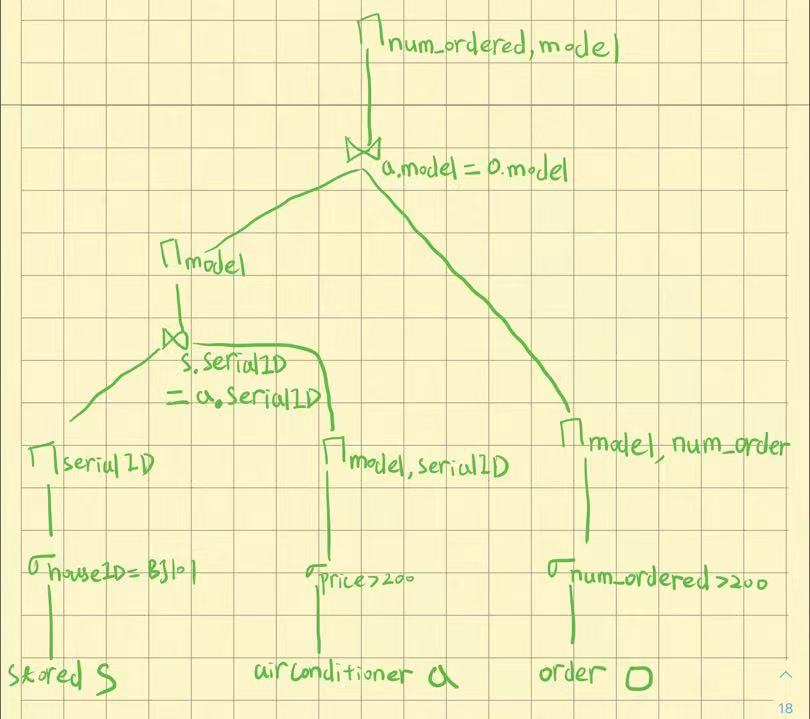 ∏ num_ordered, model
⋈ a.model = o.model
∏ model
⋈ s.serialID
= a.serialID
∏ serialID
∏ model, serialID
∏ model, num_order
σ houseID = BJ101
σ price>200
σ num_ordered >200
stored S
airconditioner a
order O
18